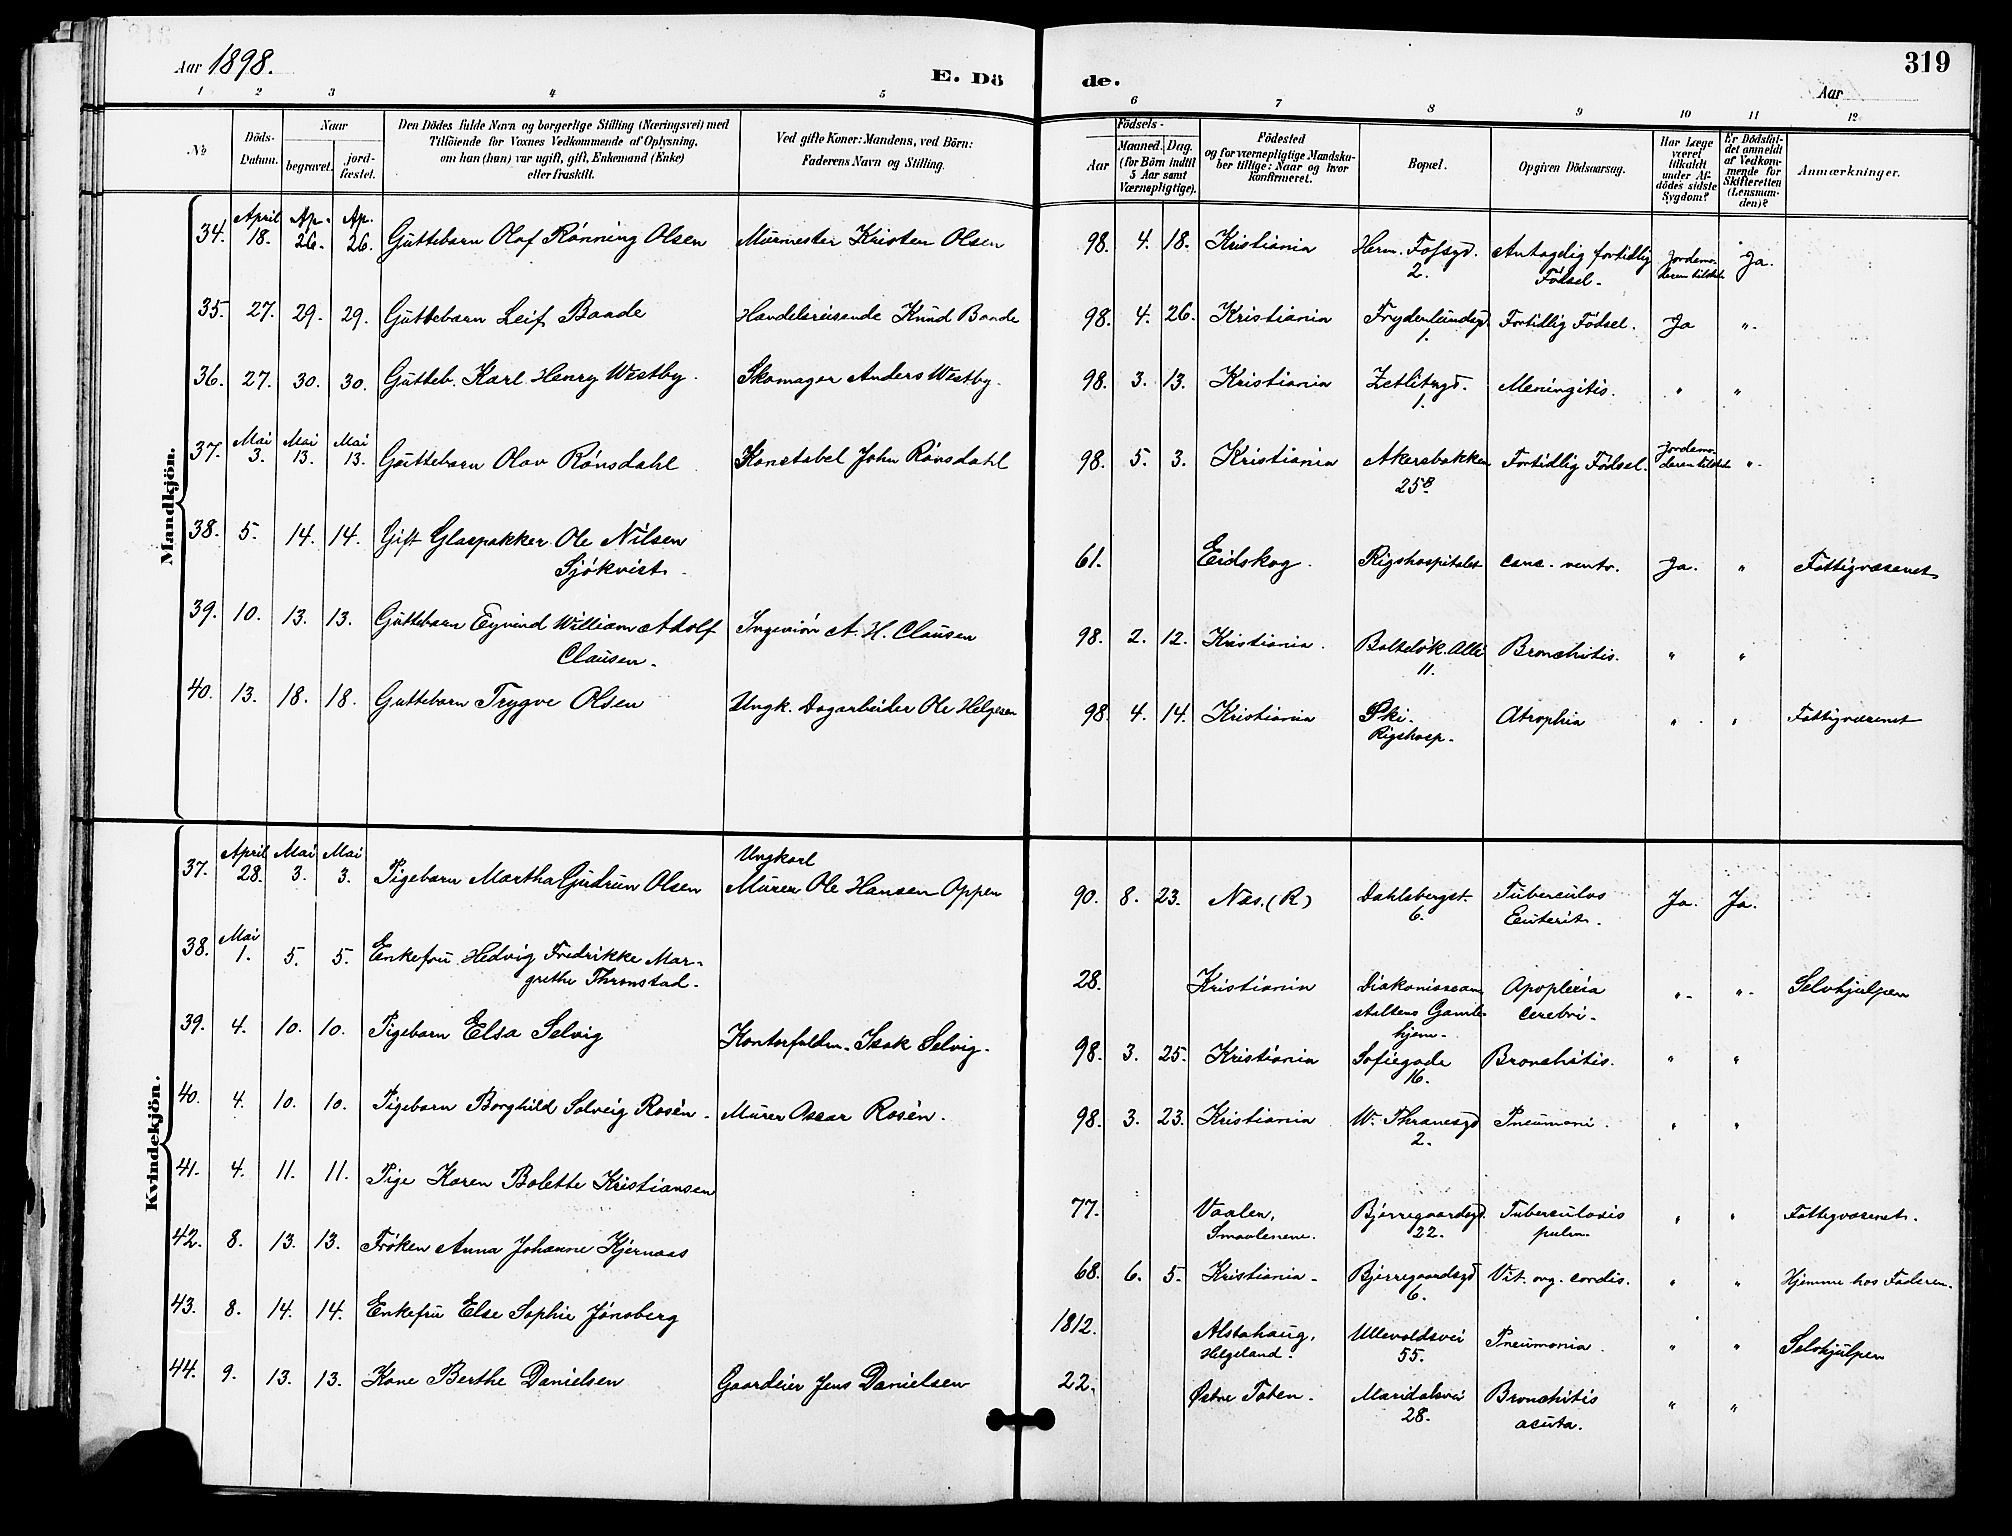 Aar 1898.
E. Dö
de.
319
Aar
1 2 3 4 5 6 7 8 9 10 11 12
No
Döds-Datum.
Naar
begravet.
jord-fæstet.
Den Dödes fulde Navn og borgerlige Stilling (Næringsvei) med
Tilföiende for Voxnes Vedkommende af Oplysning,
om han (hun) var ugift, gift, Enkemand (Enke)
eller fraskilt.
Ved gifte Koner: Mandens, ved Börn:
Faderens Navn og Stilling.
Födsels-
Aar
Maaned. Dag.
(for Börn indtil
5 Aar samt
Værnepligtige).
Födested
og for værnepligtige Mandska-
ber tillige: Naar og hvor
konfirmeret.
Bopæl.
Opgiven Dödsaarsag.
Har Læge
været
tilkaldt
under Af-
dödes sidste
Sygdom?
Er Dödsfal-
det anmeldt
af Vedkom-
mende for
Skifteretten
(Lensman-
den)?
Anmærkninger.
Mandkjön.
34. April 18. Ap. 26. Ap. 26. Guttebarn Olaf Rønning Olsen Murmester Kristen Olsen 98. 4. 18. Kristiania Herm. Fossgd. 2. Antagelig fortidlig Fødsel. Jordemoderen tilkaldt Ja.
35. 27. 29. 29. Guttebarn Leif Baade Handelsreisende Knud Baade 98. 4. 26. Kristiania Frydenlundgd. 1. Fortidlig Fødsel. Ja „
36. 27. 30. 30. Gutteb. Karl Henry Westby. Skomager Anders Westby. 98. 3. 13. Kristiania Zetlitzgd. 1. Meningitis. „ „
37. Mai 3. Mai 13. Mai 13. Guttebarn Olav Rønsdahl Konstabel John Rønsdahl 98. 5. 3. Kristiania Akersbakken 25B. Fortidlig Fødsel. „
38. 5. 14. 14. Gift Glaspakker Ole Nilsen
Sjøkvist. 61. Eidskog. Rigshospitalet canc. ventr. Ja. „ Fattigvæsenet
39. 10. 13. 13. Guttebarn Eyvind William Adolf
Clausen. Ingeniör A. H. Clausen 98. 2. 12. Kristiania. Bolteløk. Allé 11. Bronchitis. „ „
40. 13. 18. 18. Guttebarn Trygve Olsen Ungk. Dagarbeider Ole Helgesen 98. 4. 14. Kristiania Ski. Rigshosp. Atrophia „ „ Fattigvæsenet
Kvindekjön.
37. April 28. Mai 3. Mai 3. Pigebarn Martha Gudrun Olsen Ungkarl
Murer Ole Hansen Oppen 90. 8. 23. Næs. (R) Dahlsbergst. 6. Tuberculos Enterit. Ja. Ja.
38. Mai 1. 5. 5. Enkefru Hedvig Fredrikke Mar-
grethe Thronstad. 28. Kristiania Diakonissean
staltens Gamle
hjem. Apoplexia
cerebri. „ „ Selvhjulpen
39. 4. 10. 10. Pigebarn Elsa Selvig Kontorfuldm. Isak Selvig. 98. 3. 25. Kristiania Sofiegade 16. Bronchitis. „ „
40. 4. 10. 10. Pigebarn Borghild Solveig Rosén. Murer Oscar Rosén. 98. 3. 23. Kristiania W. Thranesgd 2. Pneumoni. „ „
41. 4. 11. 11. Pige Karen Bolette Kristiansen 77. Vaaler, Smaalenene. Bjerregaardsgd. 22. Tuberculosis pulm. „ „ Fattigvæsenet.
42. 8. 13. 13. Frøken Anna Johanne Kjernaas 68. 6. 5. Kristiania. Bjerregaardsgd 6. Vit. org. cordis. „ „ Hjemme hos Faderen.
43. 8. 14. 14. Enkefru Else Sophie Jønsberg 1812. Alstahaug, Helgeland. Ullevoldsvei 55. Pneumonia. „ „ Selvhjulpen
44. 9. 13. 13. Kone Berthe Danielsen Gaardeier Jens Danielsen 22. Østre Toten. Maridalsvei 28. Bronchitis acuta. „ „